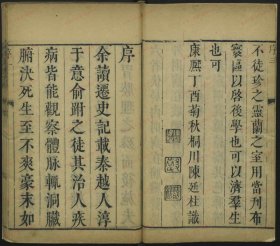 不徒珍之靈蘭之室用當刋布
寰區以啓後學也可以濟羣生
也可
康熙丁酉菊秋桐川陳廷柱識
序
余讀遷史記載秦越人淳
于意俞跗之徒其治人疾
病皆能觀察體脉輒洞臟
腑決死生至不爽豪末如